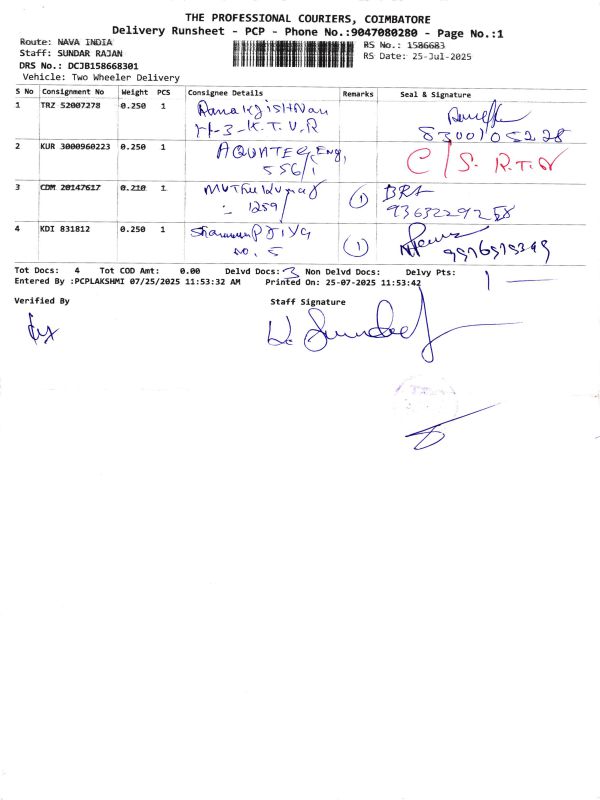 THE PROFESSIONAL COURIERS, COIMBATORE
Delivery Runsheet - PCP - Phone No.:9047080280 - Page No.:1
Route: NAVA INDIA
RS No.: 1586683
Staff: SUNDAR RAJAN
RS Date: 25-Jul-2025
DRS No.: DCJB158668301
Vehicle: Two Wheeler Delivery
S No Consignment No Weight PCS Consignee Details Remarks Seal & Signature
1 TRZ 52007278 0.250 1
H-3-K.T.V.R
8300105228
2 KUR 3000960223 0.250 1 AQUATEC Eng, C/S. R.T.O
556/1
3 CDM 20147617 0.210 1 Muthukumar 1 BRA
1259/ 9363229258
4 KDI 831812 0.250 1 Priya 1
NO. 5 9976575349
Tot Docs: 4 Tot COD Amt: 0.00 Delvd Docs: 3 Non Delvd Docs: 1 Delvy Pts:
Entered By :PCPLAKSHMI 07/25/2025 11:53:32 AM Printed On: 25-07-2025 11:53:42
Verified By Staff Signature